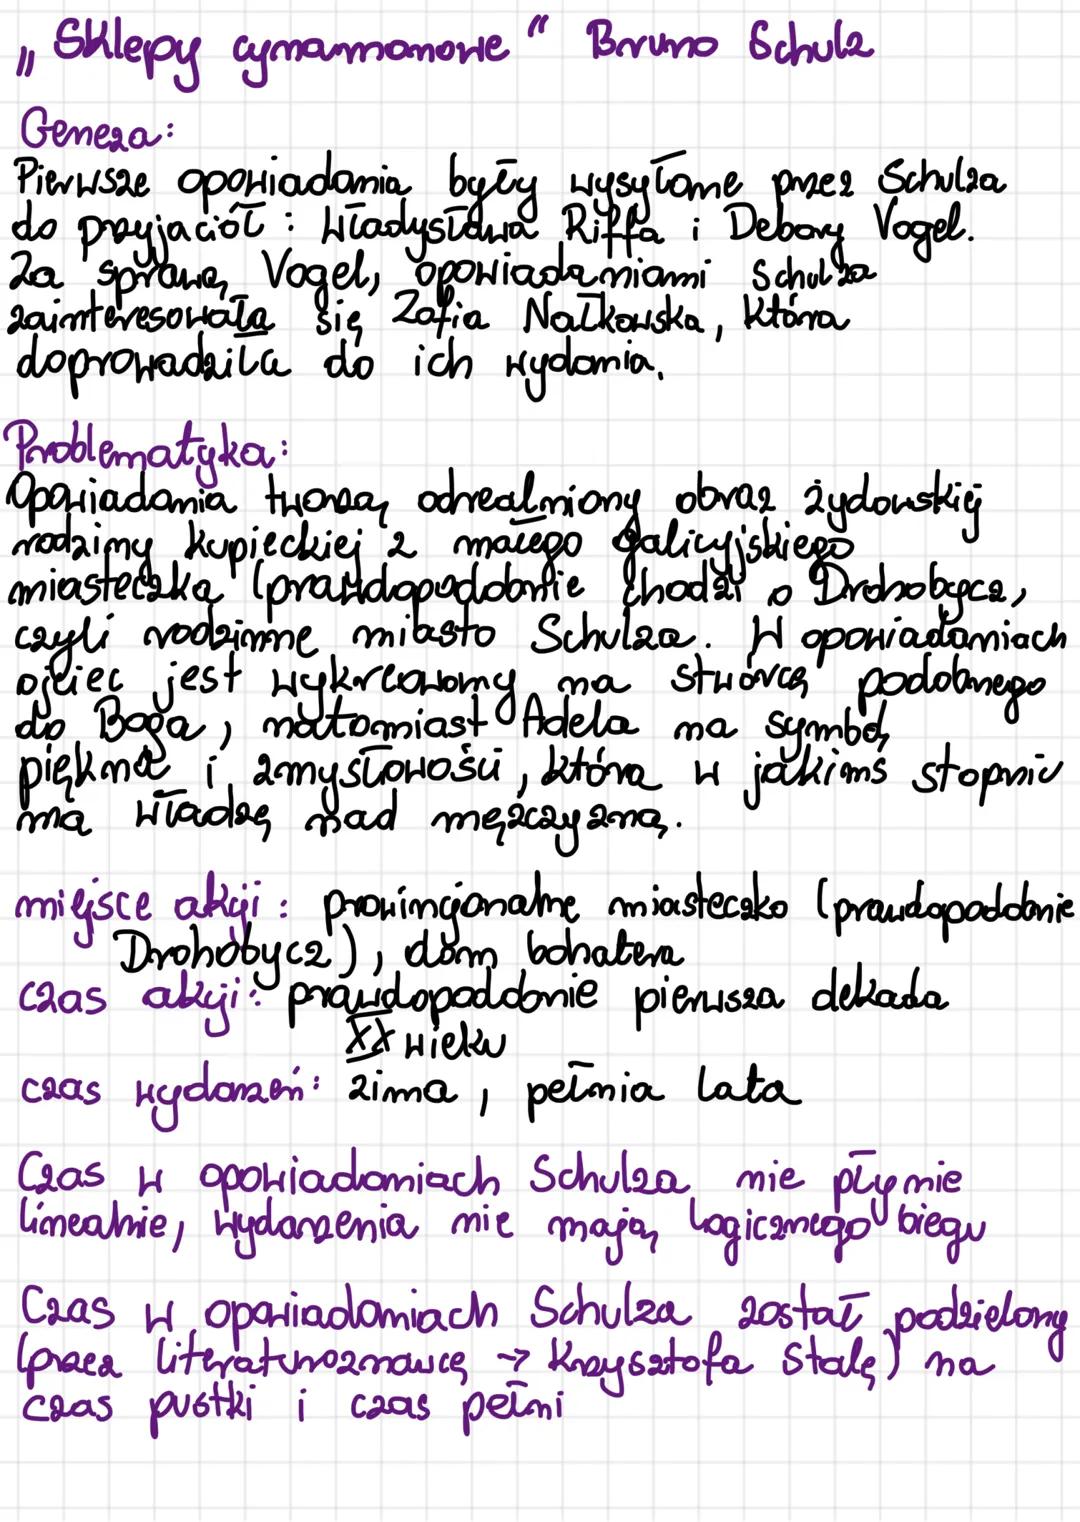 „Sklepy cynamonowe" Bruno Schulz
Geneza:
Pierwsze opowiadania były wysyłane przez Schulza
do przyjaciół: Władysława Riffa i Debory Vogel.
Za sprawą Vogel, opowiadaniami Schulza
zainteresowała się Zofia Nałkowska, która
doprowadziła do ich wydania.
Problematyka:
Opowiadania tworzą odrealniony obraz żydowskiej
rodziny kupieckiej z małego galicyjskiego
miasteczka (prawdopodobnie chodzi o Drohobycz,
czyli rodzinne miasto Schulza. W opowiadaniach
ojciec jest wykreowany na stwórcę podobnego
do Boga, natomiast Adela na symbol
piękna i zmysłowości, która w jakimś stopniu
ma władzę nad mężczyzną.
miejsce akcji: prowincjonalne miasteczko (prawdopodobnie
Drohobycz), dom bohatera
czas akcji: prawdopodobnie pierwsza dekada
XX wieku
czas wydarzeń: zima, pełnia lata
Czas w opowiadaniach Schulza nie płynie
linealnie, wydarzenia nie mają logicznego biegu
Czas w opowiadaniach Schulza został podzielony
(przez literaturoznawcę → Krzysztofa Stalę) na
czas pustki i czas pełni